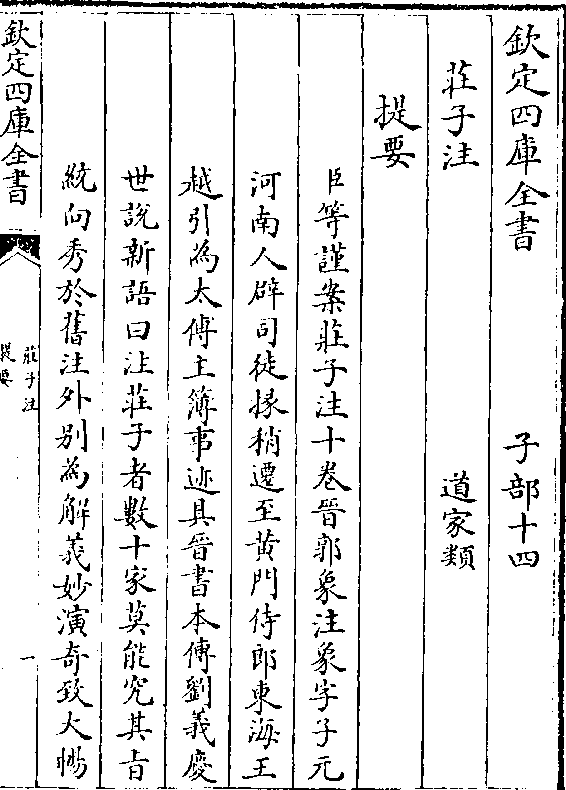 欽定四庫全書 子部十四
莊子注 道家類
提要
臣等謹案莊子注十卷晉郭象注象字子元
河南人辟司徒掾稍遷至黄門侍郎東海王
越引為太傅主簿事迹具晉書本傳劉義慶
世説新語曰注莊子者數十家莫能究其㫖
統向秀於舊注外别為解義妙演奇致大暢
欽定四庫全書
莊子注
提要
一